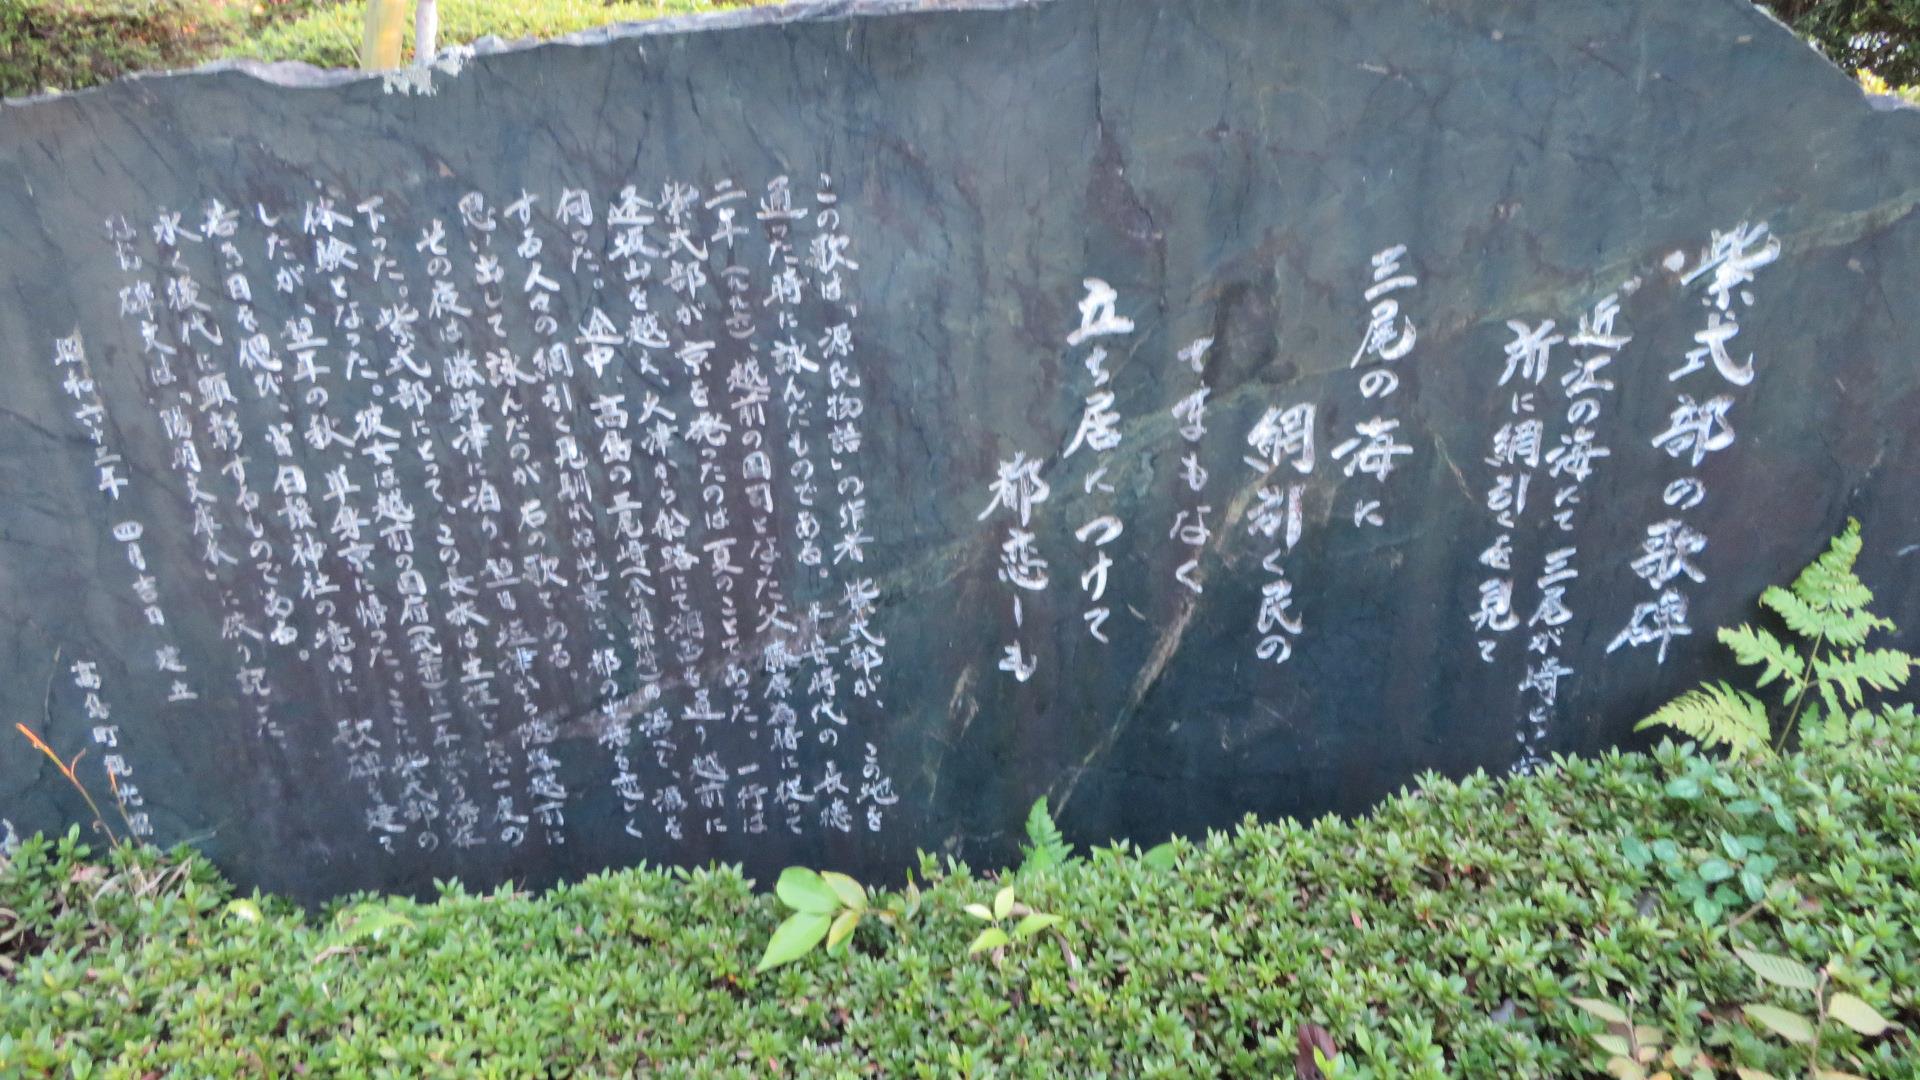 紫式部の歌碑
近江の海にて三尾が崎とい
所に網引くを見て
三尾の海に
網引く民の
てまもなく
立ち居につけて
都恋しも
この歌は、『源氏物語』の作者 紫式部が、この地を
通った時に詠んだものである。平安時代の長徳
二年(九九六)越前の国司となった父 藤原為時に従って
紫式部が京を発ったのは夏のことであった。一行は
逢坂山を越え、大津から船路にて湖西を通り越前に
向った。途中、高島の三尾崎(今の明神崎)の浜べで、漁を
する人々の網引く見馴れぬ光景に、都の生活を恋しく
思い出して詠んだのが右の歌である。
その夜は勝野津に泊り、翌日塩津から陸路越前に
下った。紫式部にとって、この長旅は生涯でただ一度の
体験となった。彼女は越前の国府(武生)に一年ばかり滞在
したが、翌年の秋、単身京に帰った。ここに紫式部の
若き日を偲び、当白鬚神社の境内に 歌碑を建て
永く後代に顕彰するものである。
碑文は、『陽明文庫本』に依り記した。
昭和六十三年 四月吉日 建立
高島町観光協